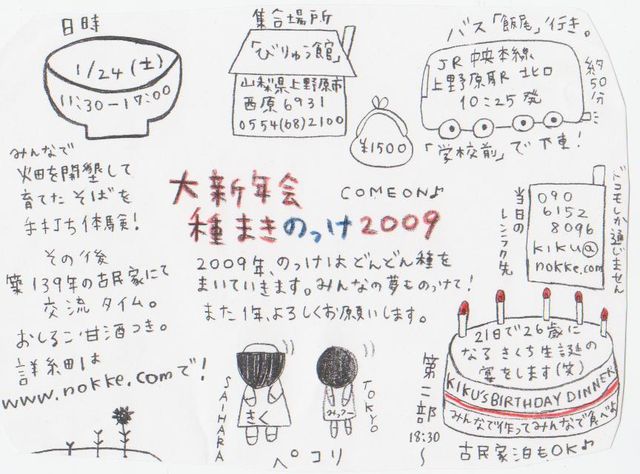 日時
1/24(土)
11:30-17:00
集合場所
「びりゅう館」
山梨県上野原市
西原6931
0554(68)2100
¥1500
バス「飯尾」行き。
JR中央本線
上野原駅北口
10:25発
約50分
「学校前」で下車!
みんなで
火田を開墾して
育てたそばを
手打ち体験!
その後
築139年の古民家にて
交流タイム。
おしるこ・甘酒つき。
詳細は
www.nokke.comで!
大新年会
COMEON♪
種まきのっけ2009
2009年、のっけはどんどん種を
まいていきます。みんなの夢ものっけて!
また1年、よろしくお願いします。
当日の
レンラク先
090
6152
8096
kiku@
nokke.com
ドコモしか通じません
SAIHARA
きく
みっつー
TOKYO
ペコリ
第二部
18:30~
21日で26歳に
なるきくち生誕の
宴をします(笑)
KIKU'S BIRTHDAY DINNER
みんなで作ってみんなで食べよ
古民家泊もOK♪